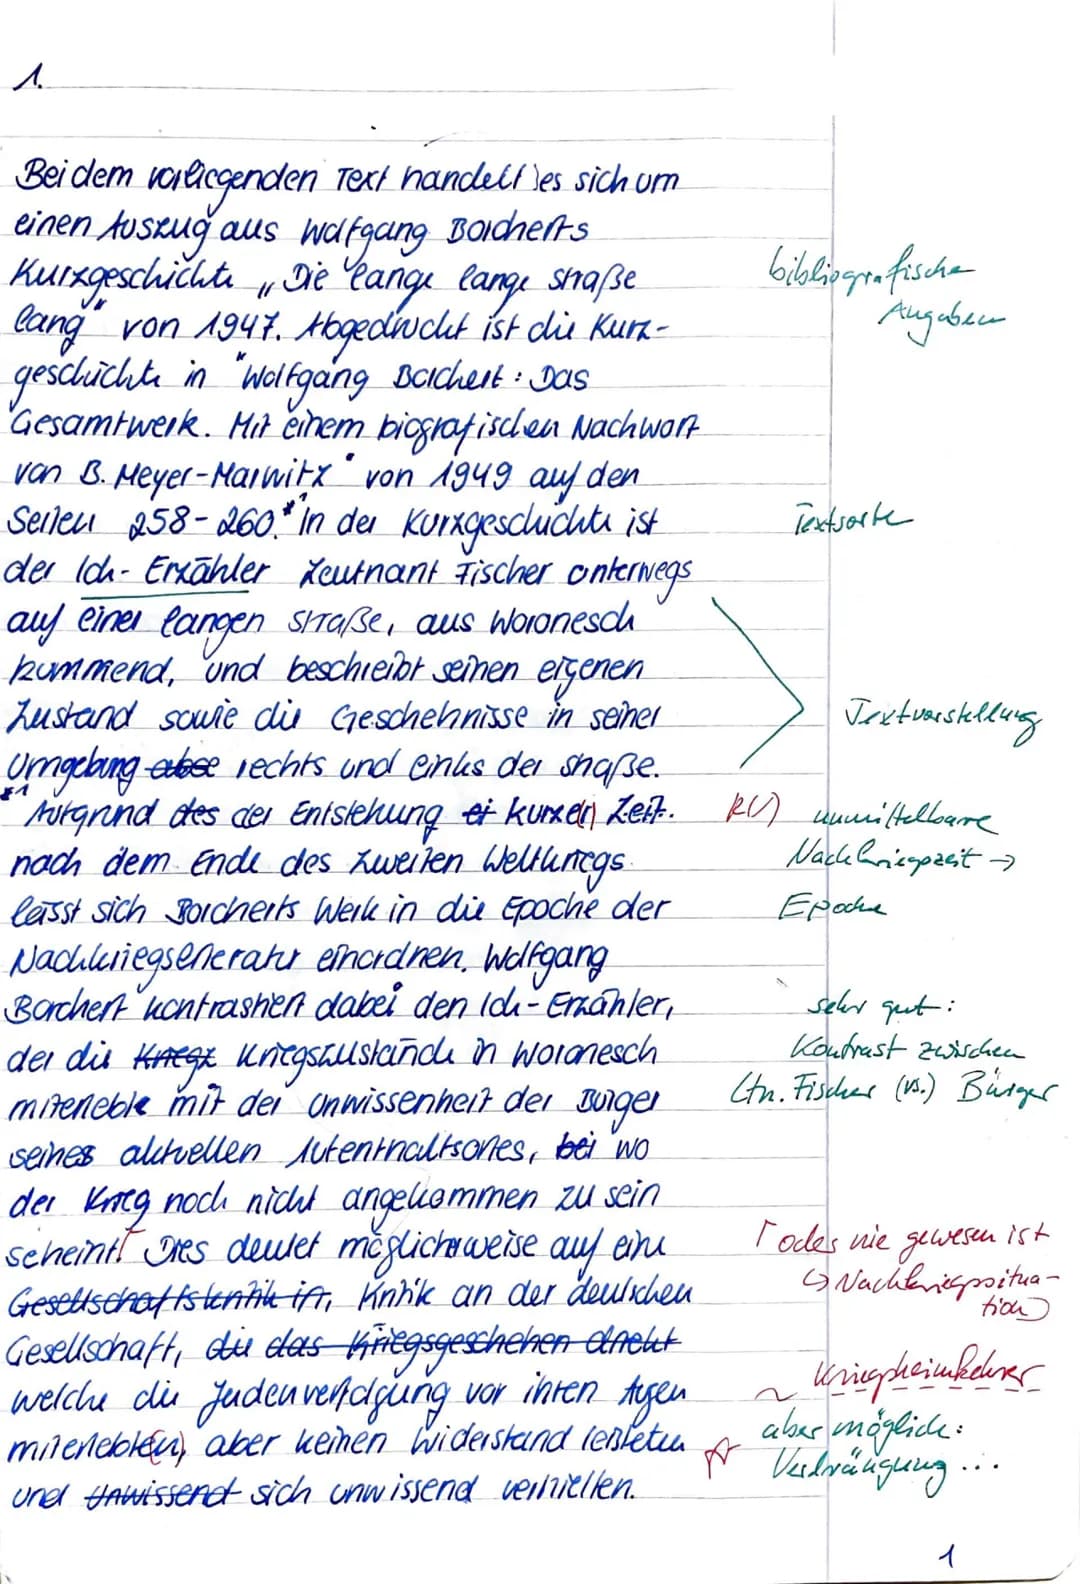 1.
Bei dem vorliegenden Text handelt es sich um
einen Auszug aus Wolfgang Borcherts
Kurzgeschichte „Die lange lange Straße
lang" von 1947. Abgedruckt ist die Kurz-
geschichte in "Wolfgang Borchert: Das
Gesamtwerk. Mit einem biografischen Nachwort
von B. Meyer-Marwitz" von 1949 auf den
Seiten 258-260.*1 In der Kurzgeschichte ist
der Ich-Erzähler Leutnant Fischer unterwegs
auf einer langen Straße, aus Woronesch
kommend, und beschreibt seinen eigenen
Zustand sowie die Geschehnisse in seiner
Umgebung abse rechts und links der Straße.
*1 Aufgrund des der Entstehung ei kurze(r) Zeit
nach dem Ende des Zweiten Weltkriegs
lässt sich Borcherts Werk in die Epoche der
Nachkriegsliteratur einordnen. Wolfgang
Borchert kontrastiert dabei den Ich-Erzähler,
der die Kriegz Kriegszustände in Woronesch
miterlebte mit der Unwissenheit der Bürger
seines aktuellen Aufenthaltsortes, bei wo
der Krieg noch nicht angekommen zu sein
scheint.⌈ Dies deutet möglicherweise auf eine
Gesellschaftskritik in, Kritik an der deutschen
Gesellschaft, die das Kriegsgeschehen direkt
welche die Judenverfolgung vor ihren Augen
miterlebte(n), aber keinen Widerstand leisteten
und Unwissend sich unwissend verhielten.
bibliografische
Angaben
Textsorte
Textvorstellung
R(√) unmittelbare
Nachkriegszeit →
Epoche
sehr gut:
Kontrast zwischen
Ltn. Fischer (vs.) Bürger
⌈ oder nie gewesen ist
↳ Nachkriegssitua-
tion)
~ Kriegsheimkehrer
aber möglich:
Verdrängung ...
1